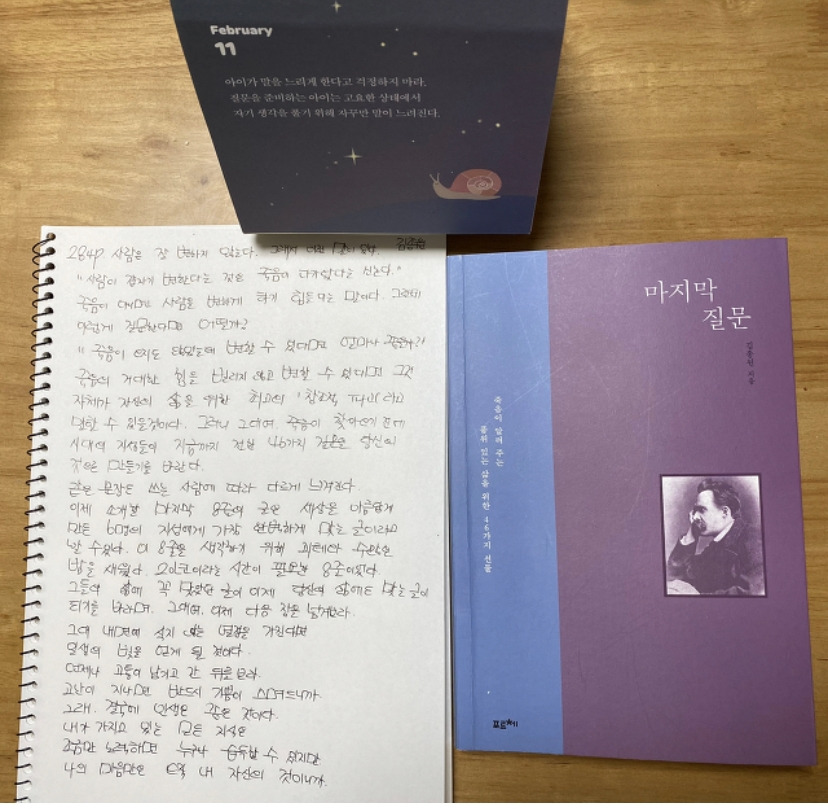 February
11
아이가 말을 느리게 한다고 걱정하지 마라.
질문을 준비하는 아이는 고요한 상태에서
자기 생각을 품기 위해 자꾸만 말이 느려진다.
284p 사람은 잘 변하지 않는다. 그래서 이런 말이 있다. 김종원
"사람이 갑자기 변한다는 것은 죽음이 다가왔다는 신호다."
죽음이 아니면 사람을 변하게 하기 힘들다는 말이다. 그런데
이렇게 질문한다면 어떨까?
"죽음이 오지도 않았는데 변할 수 있다면 얼마나 좋을까?"
죽음의 거대한 힘을 빌리지 않고 변할 수 있다면 그것
자체가 자신의 삶을 위한 최고의 '창조적 파괴'라고
말할 수 있을것이다. 그러니 그대여, 죽음이 찾아오기 전에
시대의 지성들이 지금까지 전한 46가지 질문을 당신의
것으로 만들기를 바란다.
같은 문장도 쓰는 사람에 따라 다르게 느껴진다.
이제 소개할 마지막 8줄의 글은 세상을 아름답게
만든 6명의 지성에게 가장 완벽하게 맞는 글이라고
할 수 있다. 이 8줄을 생각하기 위해 괴테와 수많은
밤을 새웠다. 20년이라는 시간이 필요한 8줄이었다.
그들의 삶에 꼭 맞았던 글이 이제 당신의 삶에도 맞는 글이
되기를 바라며. 그대여, 이제 다음 장을 넘겨보라.
그대 내면에 식지 않는 열정을 가진다면
일생의 빛을 얻게 될 것이다.
언제나 고통이 남기고 간 뒤를 보라.
고난이 지나면 반드시 기쁨이 스며드니까.
그래. 결국에 인생은 좋은 것이다.
내가 가지고 있는 모든 지식은
조금만 노력하면 누구나 습득할 수 있지만
나의 마음만은 오직 내 자신의 것이니까.
마지막
질문
김종원 지음
죽음이 알려 주는
품위 있는 삶을 위한 46가지 선물
포르체